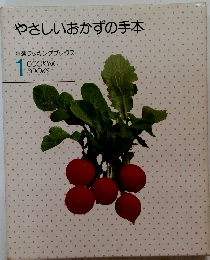 やさしいおかずの手本
クッキングブックス
1 COOKING
BOOKS